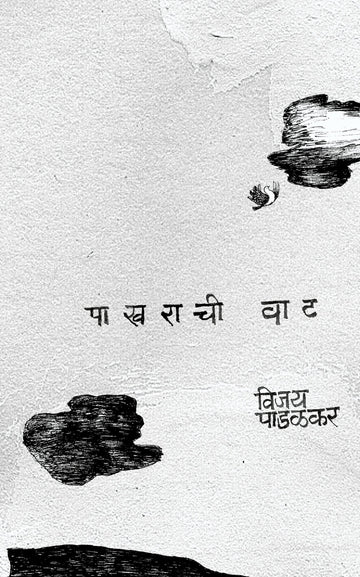 पाखराची वाट
विजय
पाडळकर